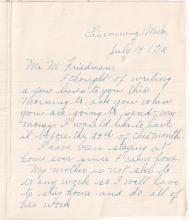 Browning, Mich.
July 19
Mr. M. Friedman:
I thought of writing
a few lines to you this
morning to ask you when
you are going to send my
money. I would like to have
it before the 24th of this month.
I have been staying at
home ever since I came home.
My mother is not able to
do any work so I will have
to stay home and do all of
her work.